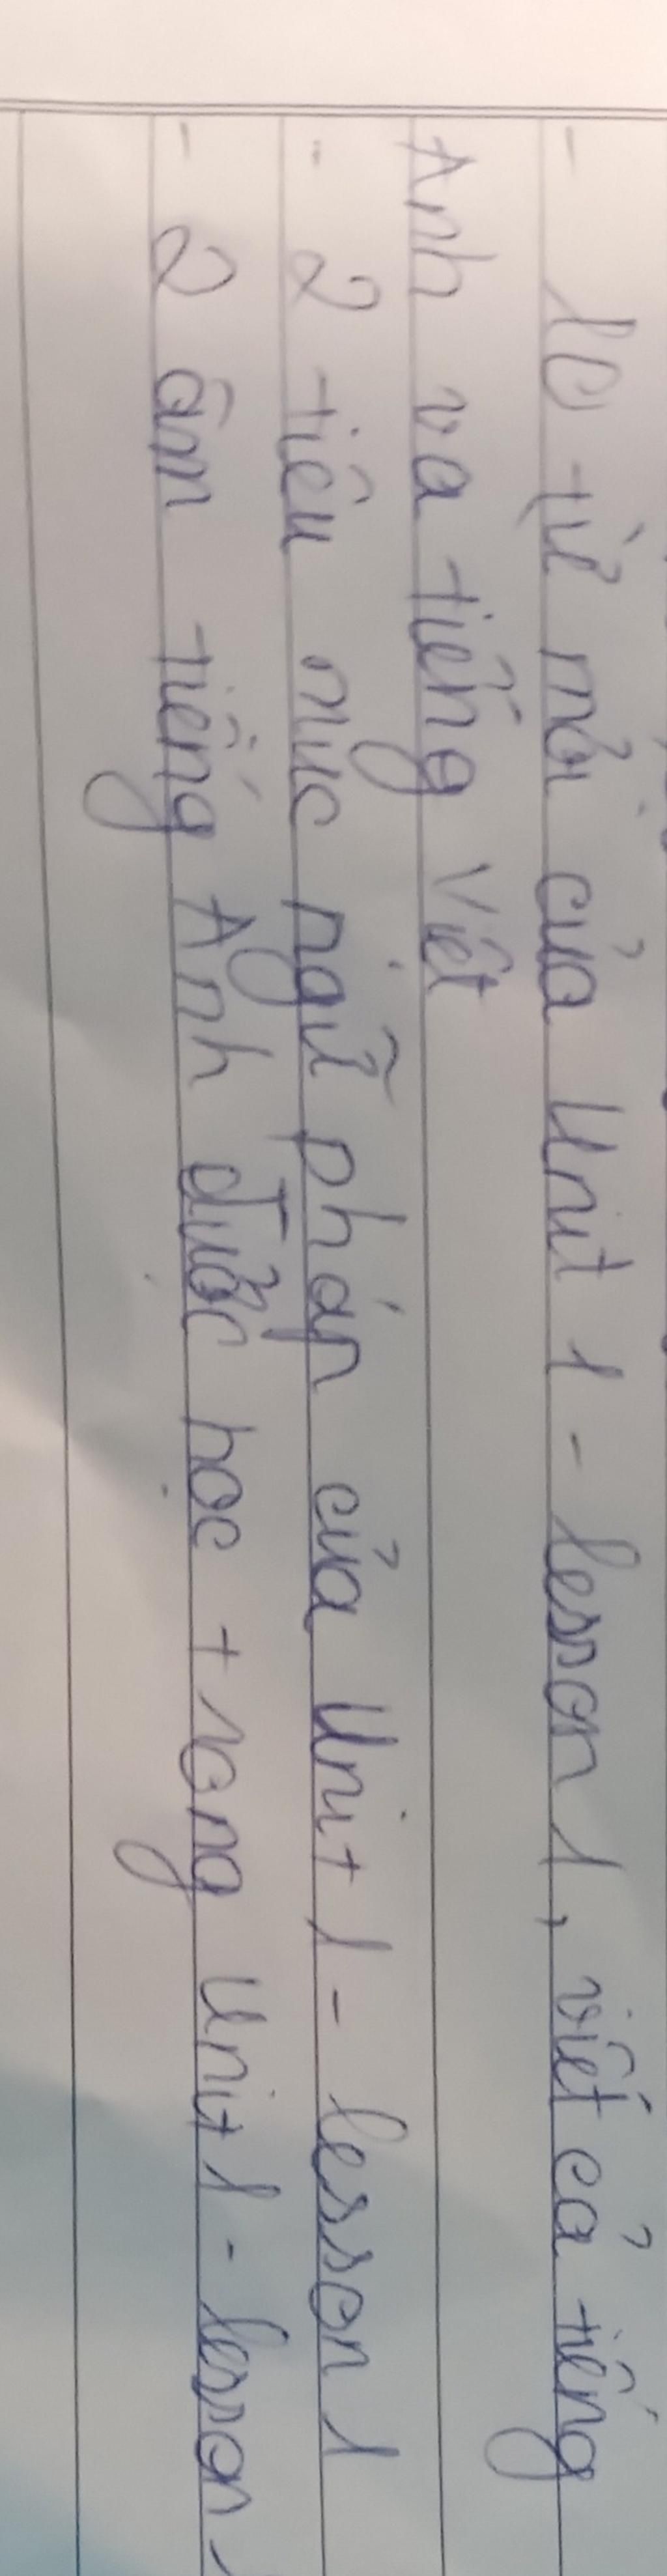 - 10 từ mới của Unit 1 - lesson 1, viết cả tiếng
Anh va tiếng Việt
- 2 tiêu mục ngữ pháp của Unit 1 - lesson 1
- 2 âm tiếng Anh được học trong Unit 1 - lesson 1